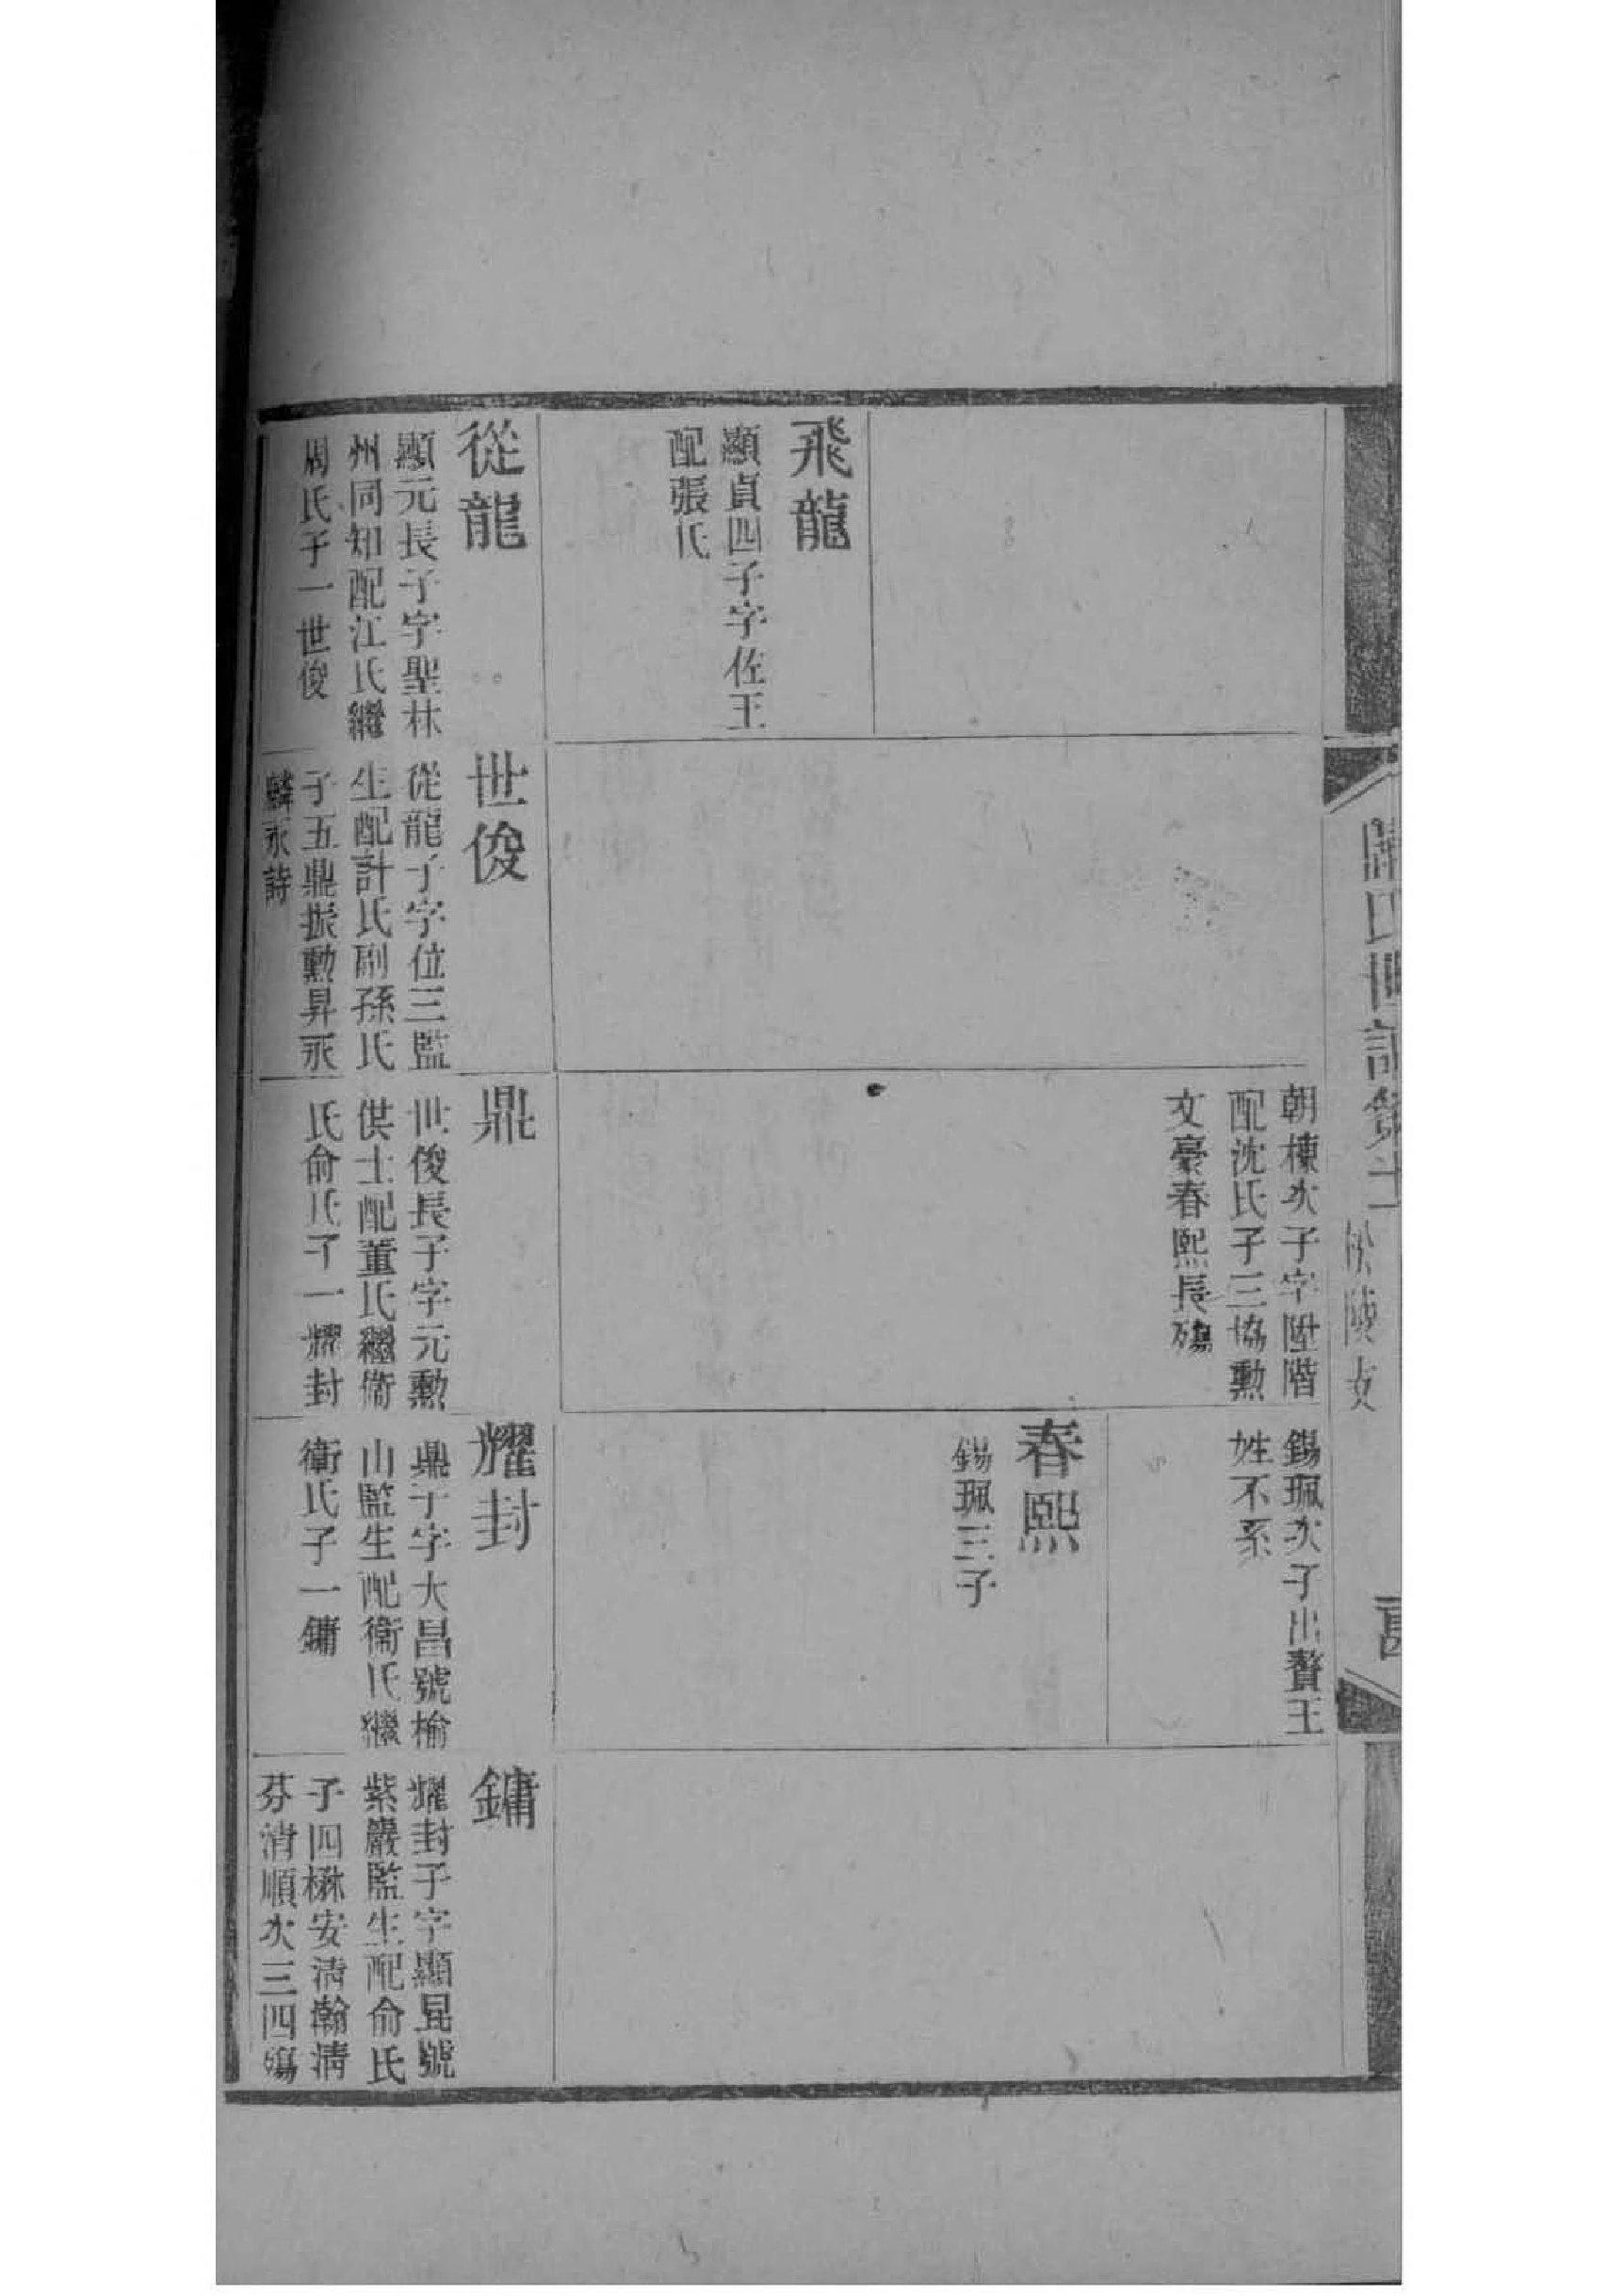 朝棟次子字陞階
配沈氏子三協勲
文臺春熙長殤
錫珮次子出贅王
姓不系
春熙
錫珮三子
飛龍
顯貞四子字佐王
配張氏
從龍
顯元長子字聖林
州同知配江氏繼
周氏子一世俊
世俊
從龍子字位三監
生配計氏副孫氏
子五鼎振勲昇永
麟永詩
鼎
世俊長子字元勲
供士配董氏繼衛
氏俞氏子一耀封
耀封
鼎子字大昌號榆
山監生配衛氏繼
衛氏子一鏞
鏞
耀封子字顯昆號
紫巖監生配俞氏
子四楙安清瀚清
芬清順次三四殤